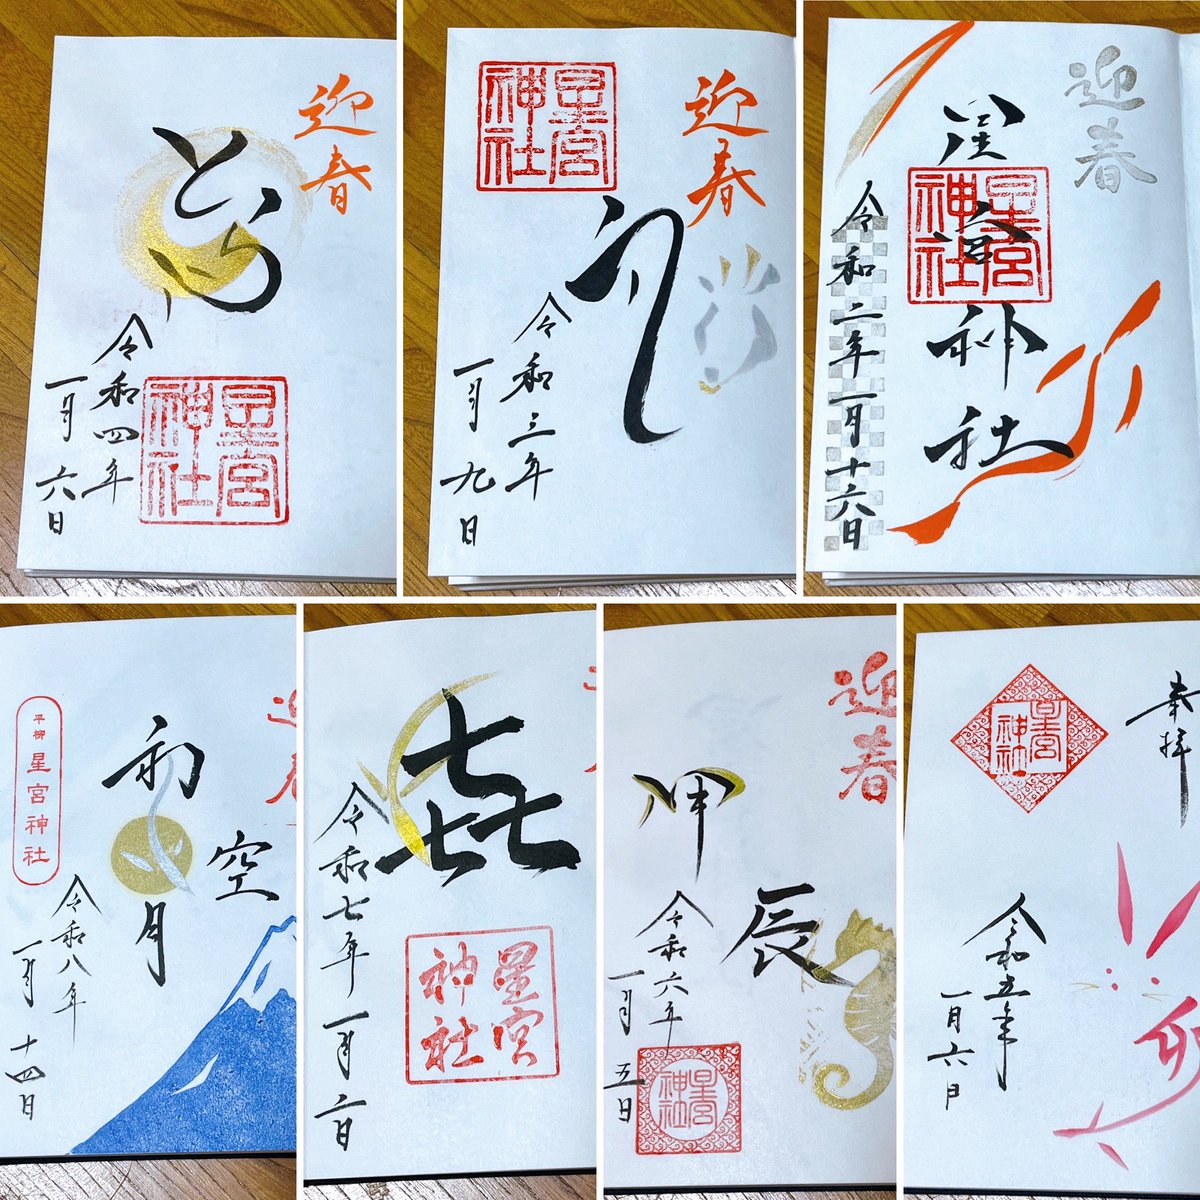 迎春
とら
令和四年
一月六日
星宮神社
迎春
星宮神社
令和三年
一月九日
迎春
星宮神社
星宮神社
令和二年一月十六日
迎春
空
月
平柳星宮神社
令和八年
一月十四日
㐂
令和七年一月
星宮神社
迎春
甲辰
令和六年
一月五日
星宮神社
奉拝
星宮神社
卯
令和五年
一月六日